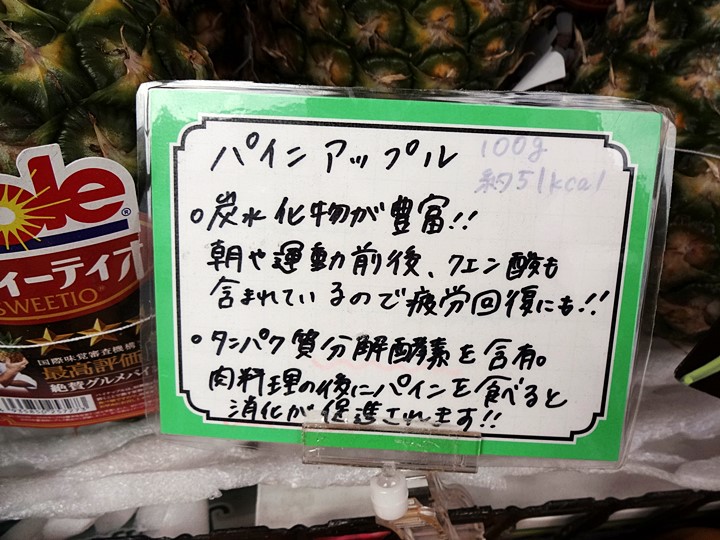 パインアップル
100g
約51kcal
○炭水化物が豊富!!
朝や運動前後、クエン酸も
含まれているので疲労回復にも!!
○タンパク質分解酵素を含有。
肉料理の後にパインを食べると
消化が促進されます!!
ole®
ィーティオ
SWEETIO
国際味覚審査機構
最高評価
絶賛グルメパイ